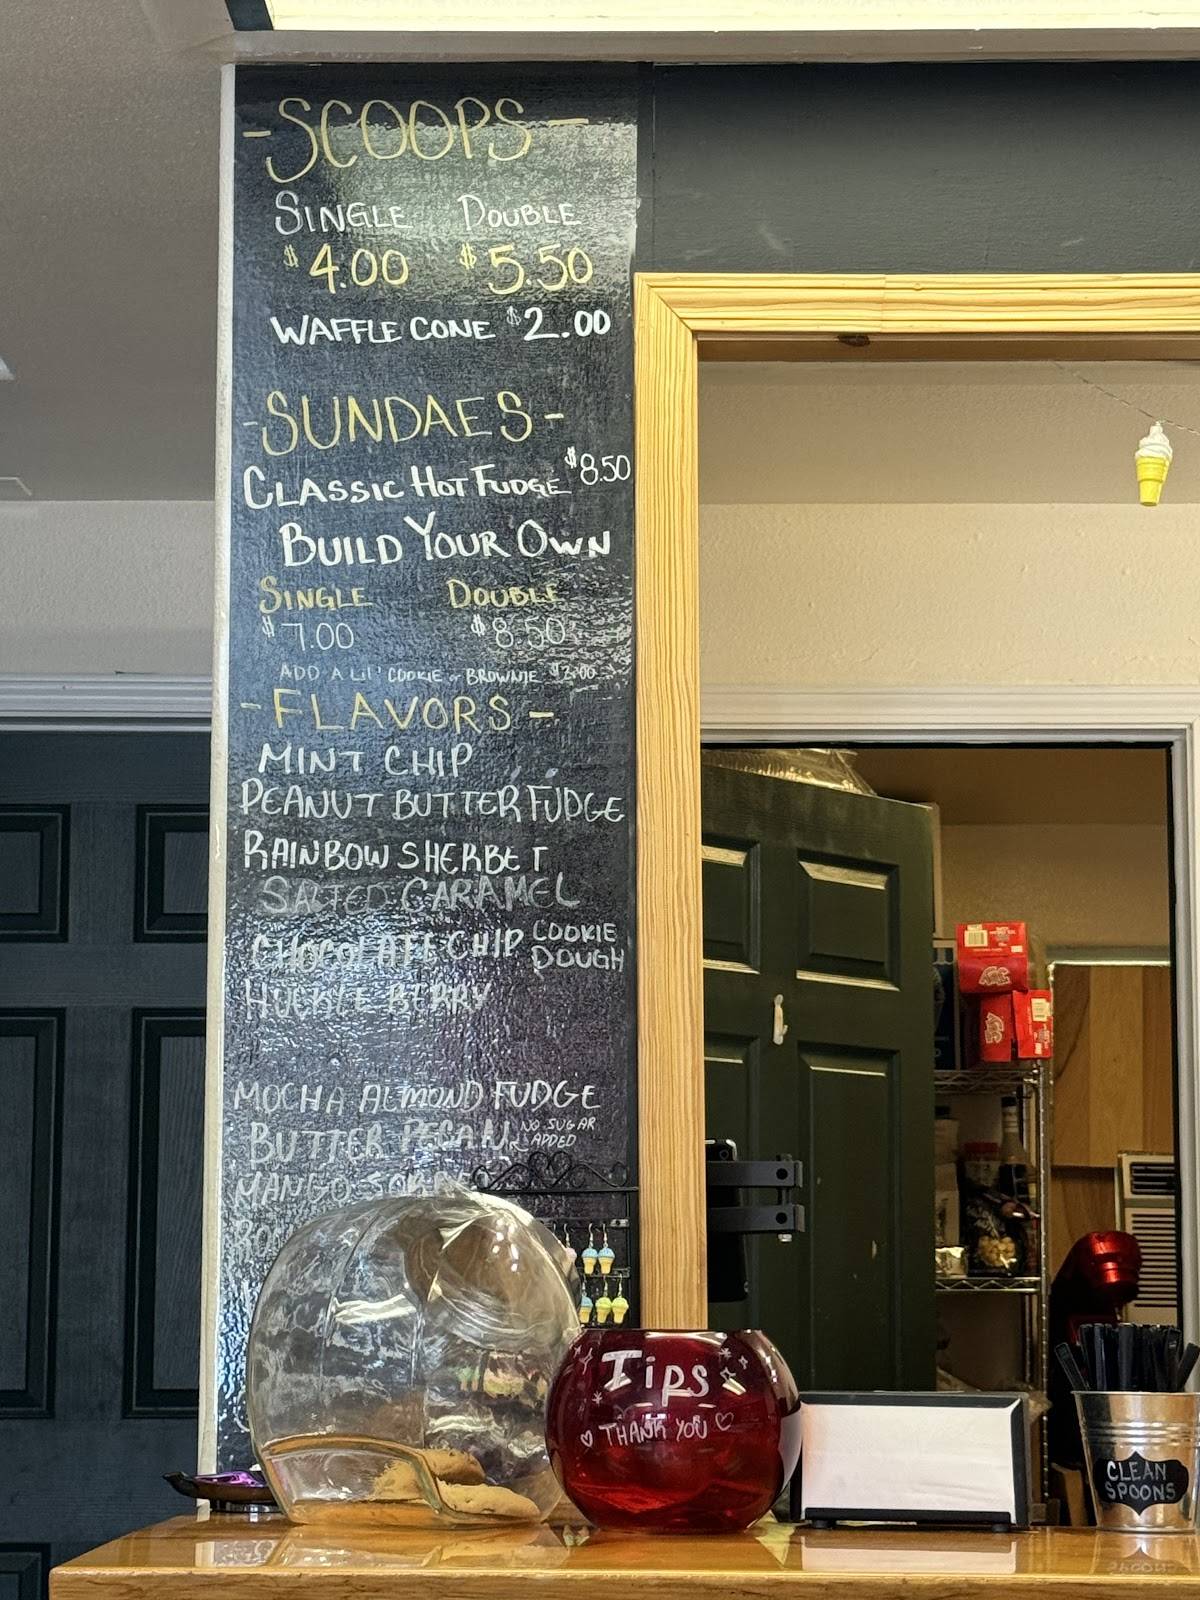 -SCOOPS-
SINGLE DOUBLE
$4.00 $5.50
WAFFLE CONE $2.00
-SUNDAES-
CLASSIC HOT FUDGE $8.50
BUILD YOUR OWN
SINGLE DOUBLE
$7.00 $8.50
ADD A LIL' COOKIE or BROWNIE $2.00
-FLAVORS-
MINT CHIP
PEANUT BUTTER FUDGE
RAINBOW SHERBET
SALTED CARAMEL
CHOCOLATE CHIP COOKIE DOUGH
HUCKLEBERRY
MOCHA ALMOND FUDGE
BUTTER PECAN NO SUGAR ADDED
MANGO
Tips
THANK YOU
CLEAN
SPOONS